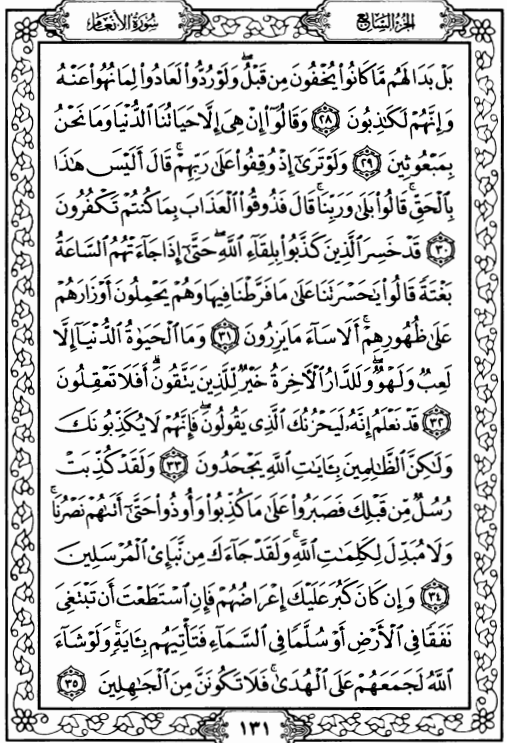 الجزء السابع سورة الأنعام
بَلْ بَدَا لَهُم مَّا كَانُوا۟ يُخْفُونَ مِن قَبْلُ ۖ وَلَوْ رُدُّوا۟ لَعَادُوا۟ لِمَا نُهُوا۟ عَنْهُ
وَإِنَّهُمْ لَكَـٰذِبُونَ ٢٨ وَقَالُوٓا۟ إِنْ هِىَ إِلَّا حَيَاتُنَا ٱلدُّنْيَا وَمَا نَحْنُ
بِمَبْعُوثِينَ ٢٩ وَلَوْ تَرَىٰٓ إِذْ وُقِفُوا۟ عَلَىٰ رَبِّهِمْ ۚ قَالَ أَلَيْسَ هَـٰذَا
بِٱلْحَقِّ ۚ قَالُوا۟ بَلَىٰ وَرَبِّنَا ۚ قَالَ فَذُوقُوا۟ ٱلْعَذَابَ بِمَا كُنتُمْ تَكْفُرُونَ
٣٠ قَدْ خَسِرَ ٱلَّذِينَ كَذَّبُوا۟ بِلِقَآءِ ٱللَّهِ ۖ حَتَّىٰٓ إِذَا جَآءَتْهُمُ ٱلسَّاعَةُ
بَغْتَةً قَالُوا۟ يَـٰحَسْرَتَنَا عَلَىٰ مَا فَرَّطْنَا فِيهَا وَهُمْ يَحْمِلُونَ أَوْزَارَهُمْ
عَلَىٰ ظُهُورِهِمْ ۚ أَلَا سَآءَ مَا يَزِرُونَ ٣١ وَمَا ٱلْحَيَوٰةُ ٱلدُّنْيَآ إِلَّا
لَعِبٌ وَلَهْوٌ ۖ وَلَلدَّارُ ٱلْـَٔاخِرَةُ خَيْرٌ لِّلَّذِينَ يَتَّقُونَ ۗ أَفَلَا تَعْقِلُونَ
٣٢ قَدْ نَعْلَمُ إِنَّهُۥ لَيَحْزُنُكَ ٱلَّذِى يَقُولُونَ ۖ فَإِنَّهُمْ لَا يُكَذِّبُونَكَ
وَلَـٰكِنَّ ٱلظَّـٰلِمِينَ بِـَٔايَـٰتِ ٱللَّهِ يَجْحَدُونَ ٣٣ وَلَقَدْ كُذِّبَتْ
رُسُلٌ مِّن قَبْلِكَ فَصَبَرُوا۟ عَلَىٰ مَا كُذِّبُوا۟ وَأُوذُوا۟ حَتَّىٰٓ أَتَىٰهُمْ نَصْرُنَا ۚ
وَلَا مُبَدِّلَ لِكَلِمَـٰتِ ٱللَّهِ ۚ وَلَقَدْ جَآءَكَ مِن نَّبَإِى۟ ٱلْمُرْسَلِينَ
٣٤ وَإِن كَانَ كَبُرَ عَلَيْكَ إِعْرَاضُهُمْ فَإِنِ ٱسْتَطَعْتَ أَن تَبْتَغِىَ
نَفَقًا فِى ٱلْأَرْضِ أَوْ سُلَّمًا فِى ٱلسَّمَآءِ فَتَأْتِيَهُم بِـَٔايَةٍ ۚ وَلَوْ شَآءَ
ٱللَّهُ لَجَمَعَهُمْ عَلَى ٱلْهُدَىٰ ۚ فَلَا تَكُونَنَّ مِنَ ٱلْجَـٰهِلِينَ ٣٥
١٣١